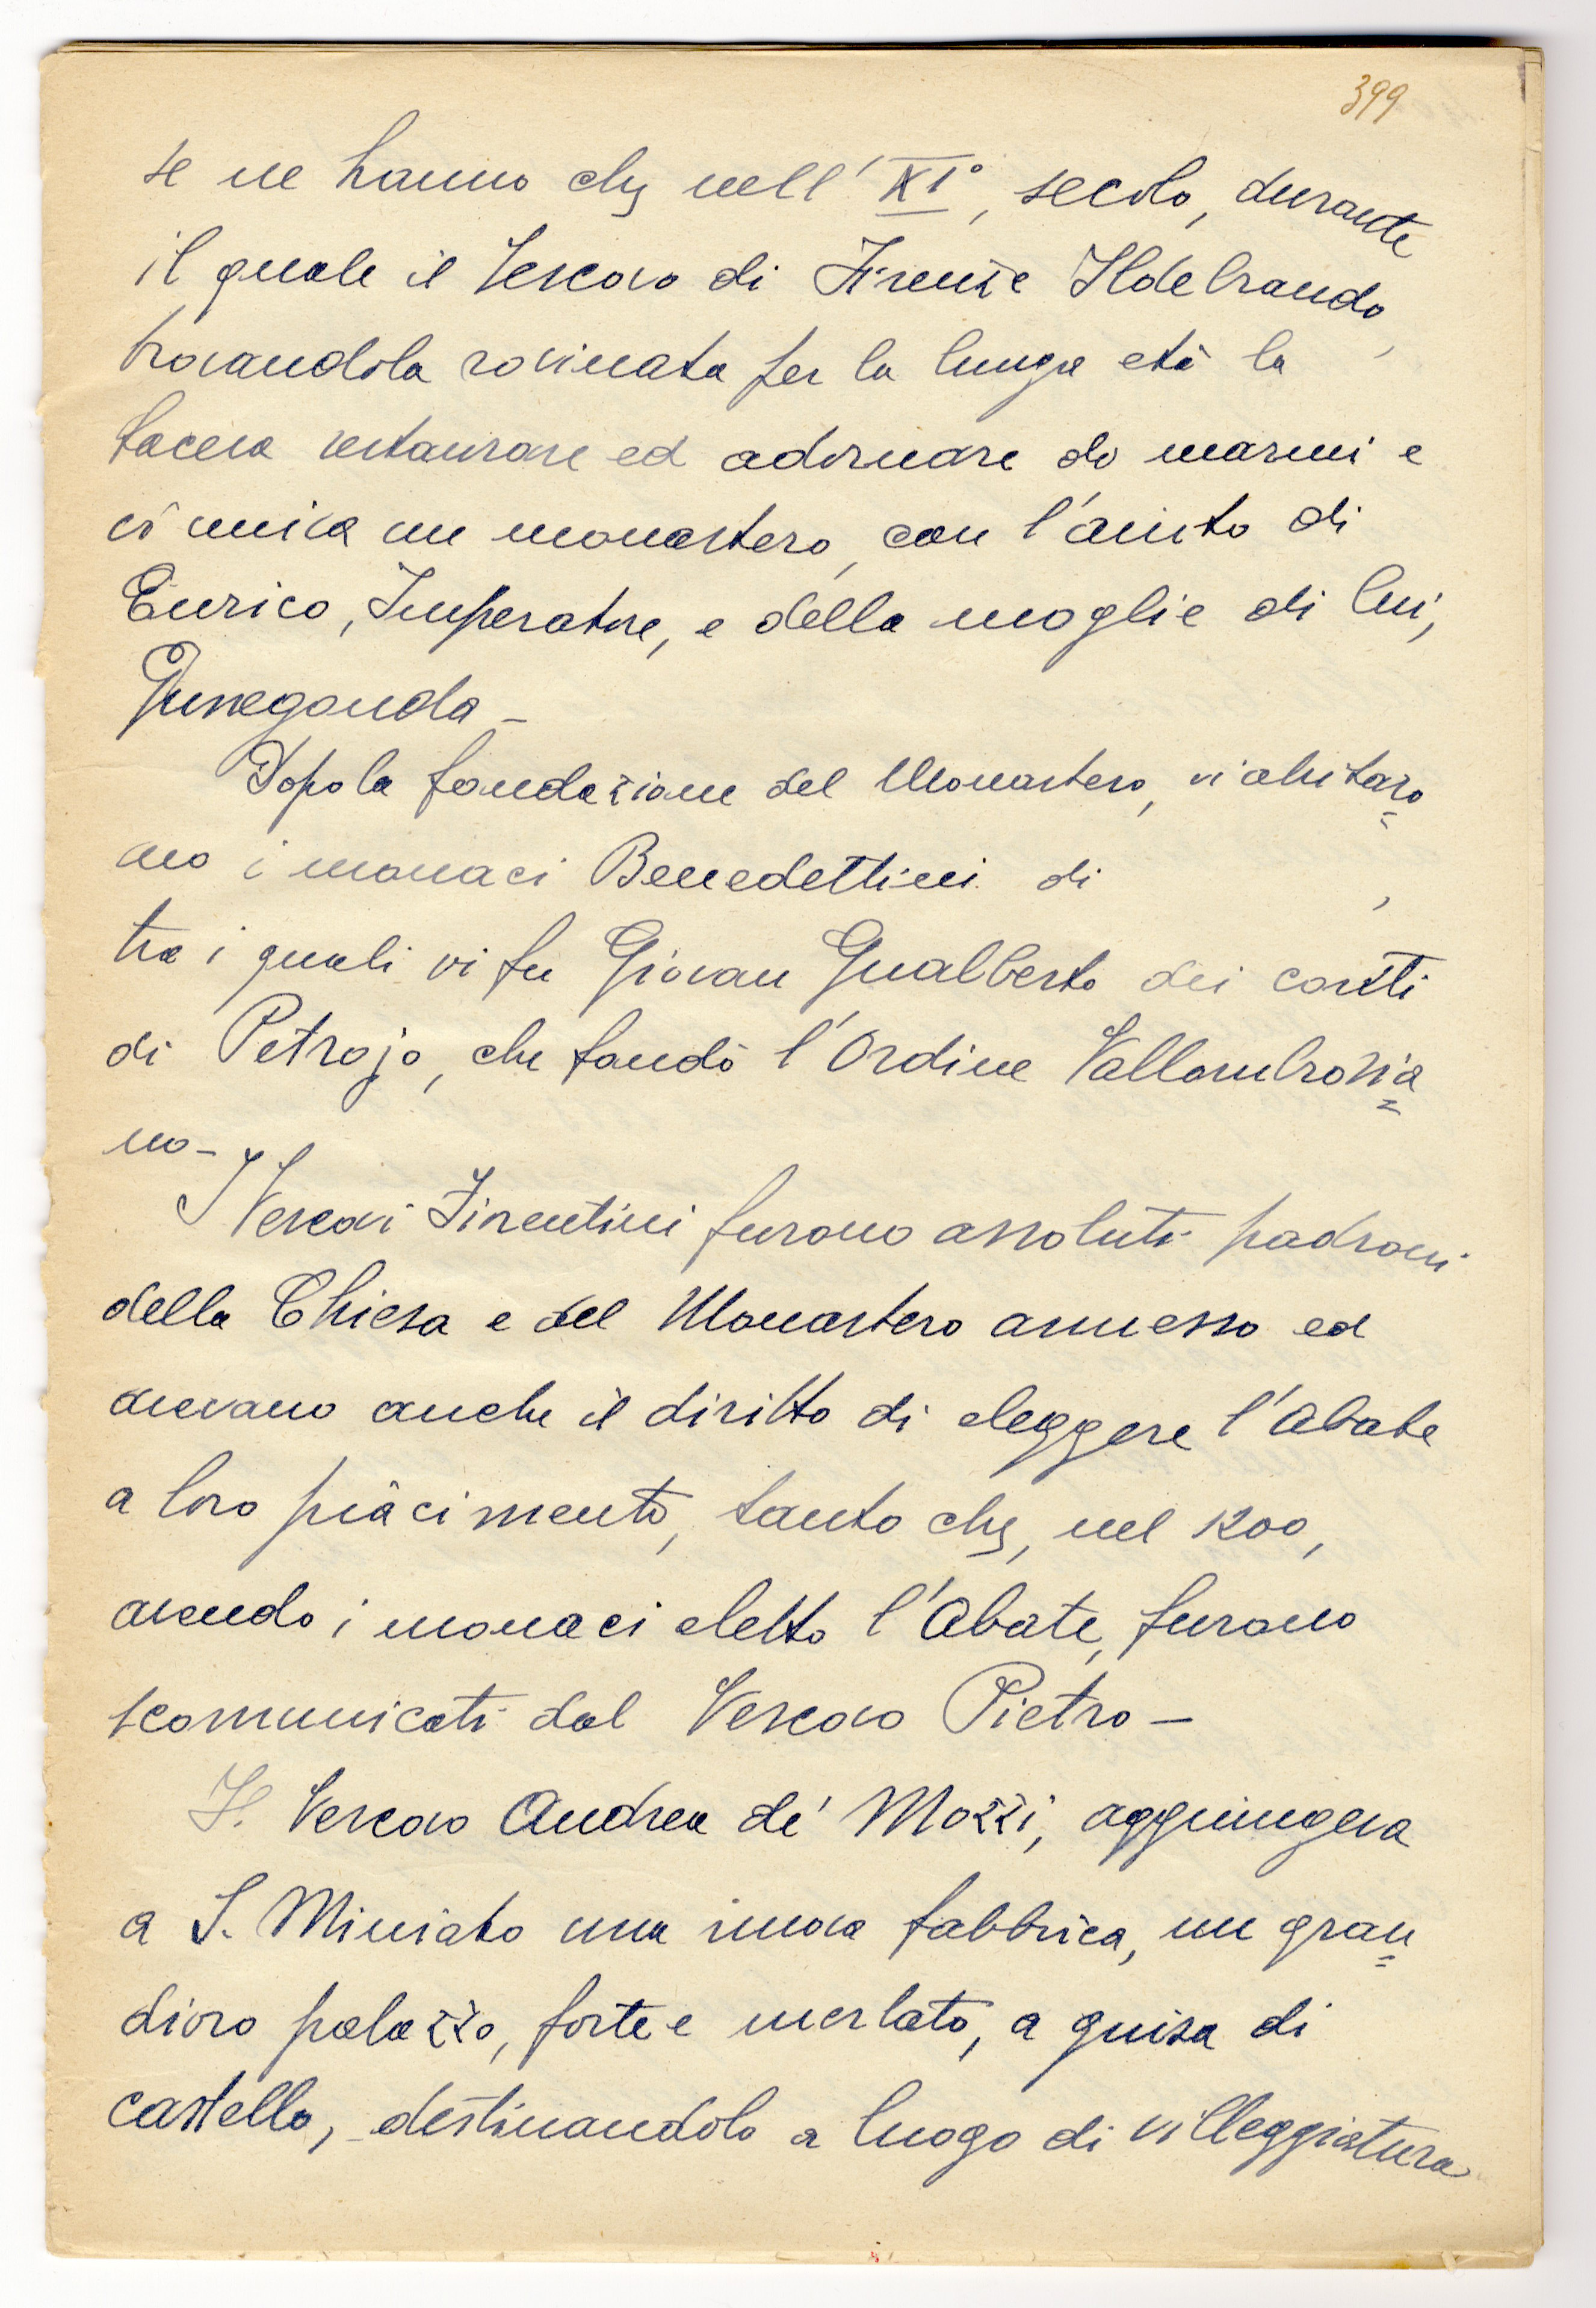 399
se ne hanno che nell' XI°, secolo, durante
il quale il Vescovo di Firenze Ildebrando,
trovandola rovinata per la lunga età la
faceva restaurare ed adornare di marmi e
ci univa un monastero, con l'aiuto di
Enrico, Imperatore, e della moglie di lui,
Gunegonda -
Dopo la fondazione del Monastero, vi abitaro=
no i monaci Benedettini di ,
tra i quali vi fu Giovan Gualberto dei conti
di Petrojo, che fondò l'Ordine Vallombrosia=
no -
I Vescovi Fiorentini furono assoluti padroni
della Chiesa e del Monastero annesso ed
avevano anche il diritto di eleggere l'Abate
a loro piacimento, tanto che, nel 1200,
avendo i monaci eletto l'Abate, furono
scomunicati dal Vescovo Pietro -
Il Vescovo Andrea de' Mozzi, aggiungeva
a S. Miniato una nuova fabbrica, un gran=
dioso palazzo, forte e merlato, a guisa di
castello, destinandolo a luogo di villeggiatura